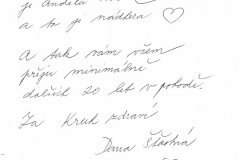 je andělů
a to je nádhera ♡
A tak vám všem
přeju minimálně
dalších 20 let v pohodě.
Za Kruh zdraví
Šťastná